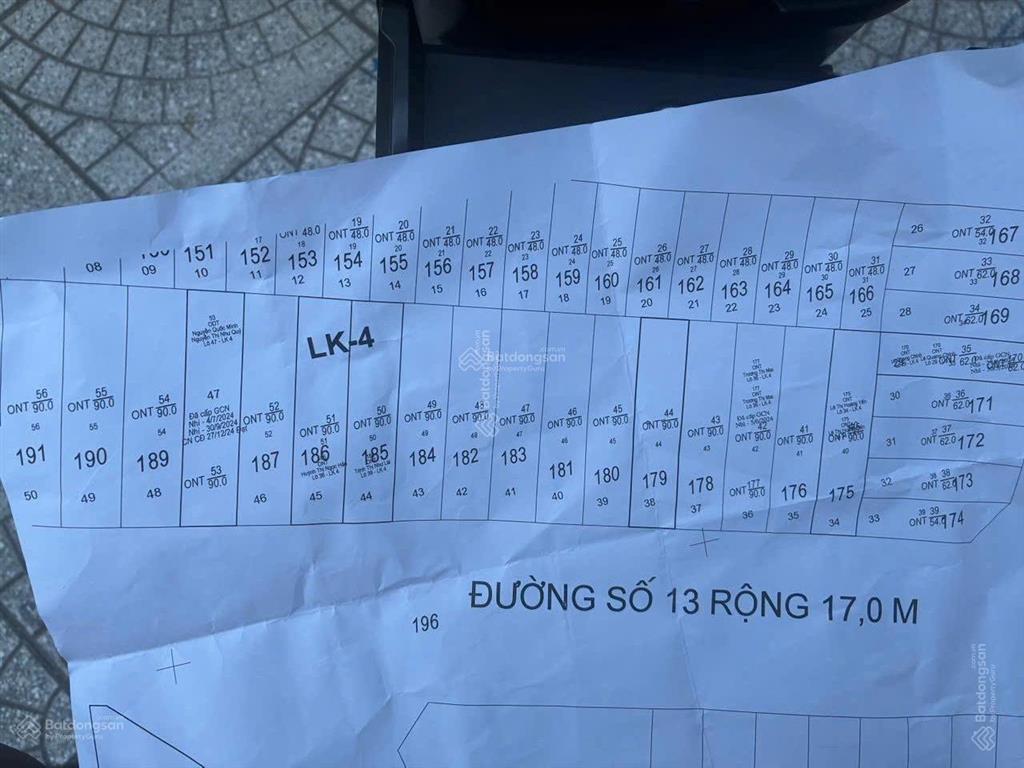 08
09
151
10
17
152
11
ONT 48.0
18
153
12
19
ONT 48.0
19
154
13
20
ONT 48.0
20
155
14
21
ONT 48.0
21
156
15
22
ONT 48.0
22
157
16
23
ONT 48.0
23
158
17
24
ONT 48.0
24
159
18
25
ONT 48.0
25
160
19
26
ONT 48.0
26
161
20
27
ONT 48.0
27
162
21
28
ONT 48.0
28
163
22
29
ONT 48.0
29
164
23
30
ONT 48.0
30
165
24
31
ONT 48.0
31
166
25
26
32
ONT 54.0
32
167
27
33
ONT 62.0
33
168
28
34
ONT 62.0
169
35
62.0
30
36
ONT 62.0
171
31
37
ONT 62.0
172
32
38
ONT 62.0
173
33
39
ONT 54.0
174
LK-4
56
ONT 90.0
56
191
50
55
ONT 90.0
55
190
49
54
ONT 90.0
54
189
48
53
ONT
Nguyễn Quốc Minh
Nguyễn Thị Như Quý
Lô 47 - LK 4
47
Đã cấp GCN
Nhi - 4/1/2024
Nhi - 30/9/2024
CN CĐ 27/12/24 Đạt
53
ONT 90.0
52
ONT 90.0
52
187
46
51
ONT 90.0
51
186
Huỳnh Thị Ngọc Hân
45
50
ONT 90.0
50
185
44
49
ONT 90.0
49
184
43
48
ONT 90.0
48
182
42
47
ONT 90.0
47
183
41
46
ONT 90.0
46
181
40
45
ONT 90.0
45
180
39
44
ONT 90.0
44
179
38
43
ONT 90.0
43
178
37
177
ONT
Trương Thị Mai
Đã cấp GCN
42
ONT 90.0
42
ONT 177
90.0
36
41
ONT 90.0
41
176
35
ONT 90.0
40
175
34
ĐƯỜNG SỐ 13 RỘNG 17,0 M
196
Batdongsan
by PropertyGuru
Batdongsan
by PropertyGuru
Batdongsan
by PropertyGuru
Batdongsan
by PropertyGuru